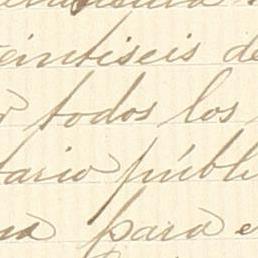 eintiseis de
todos los
tario públ
para e